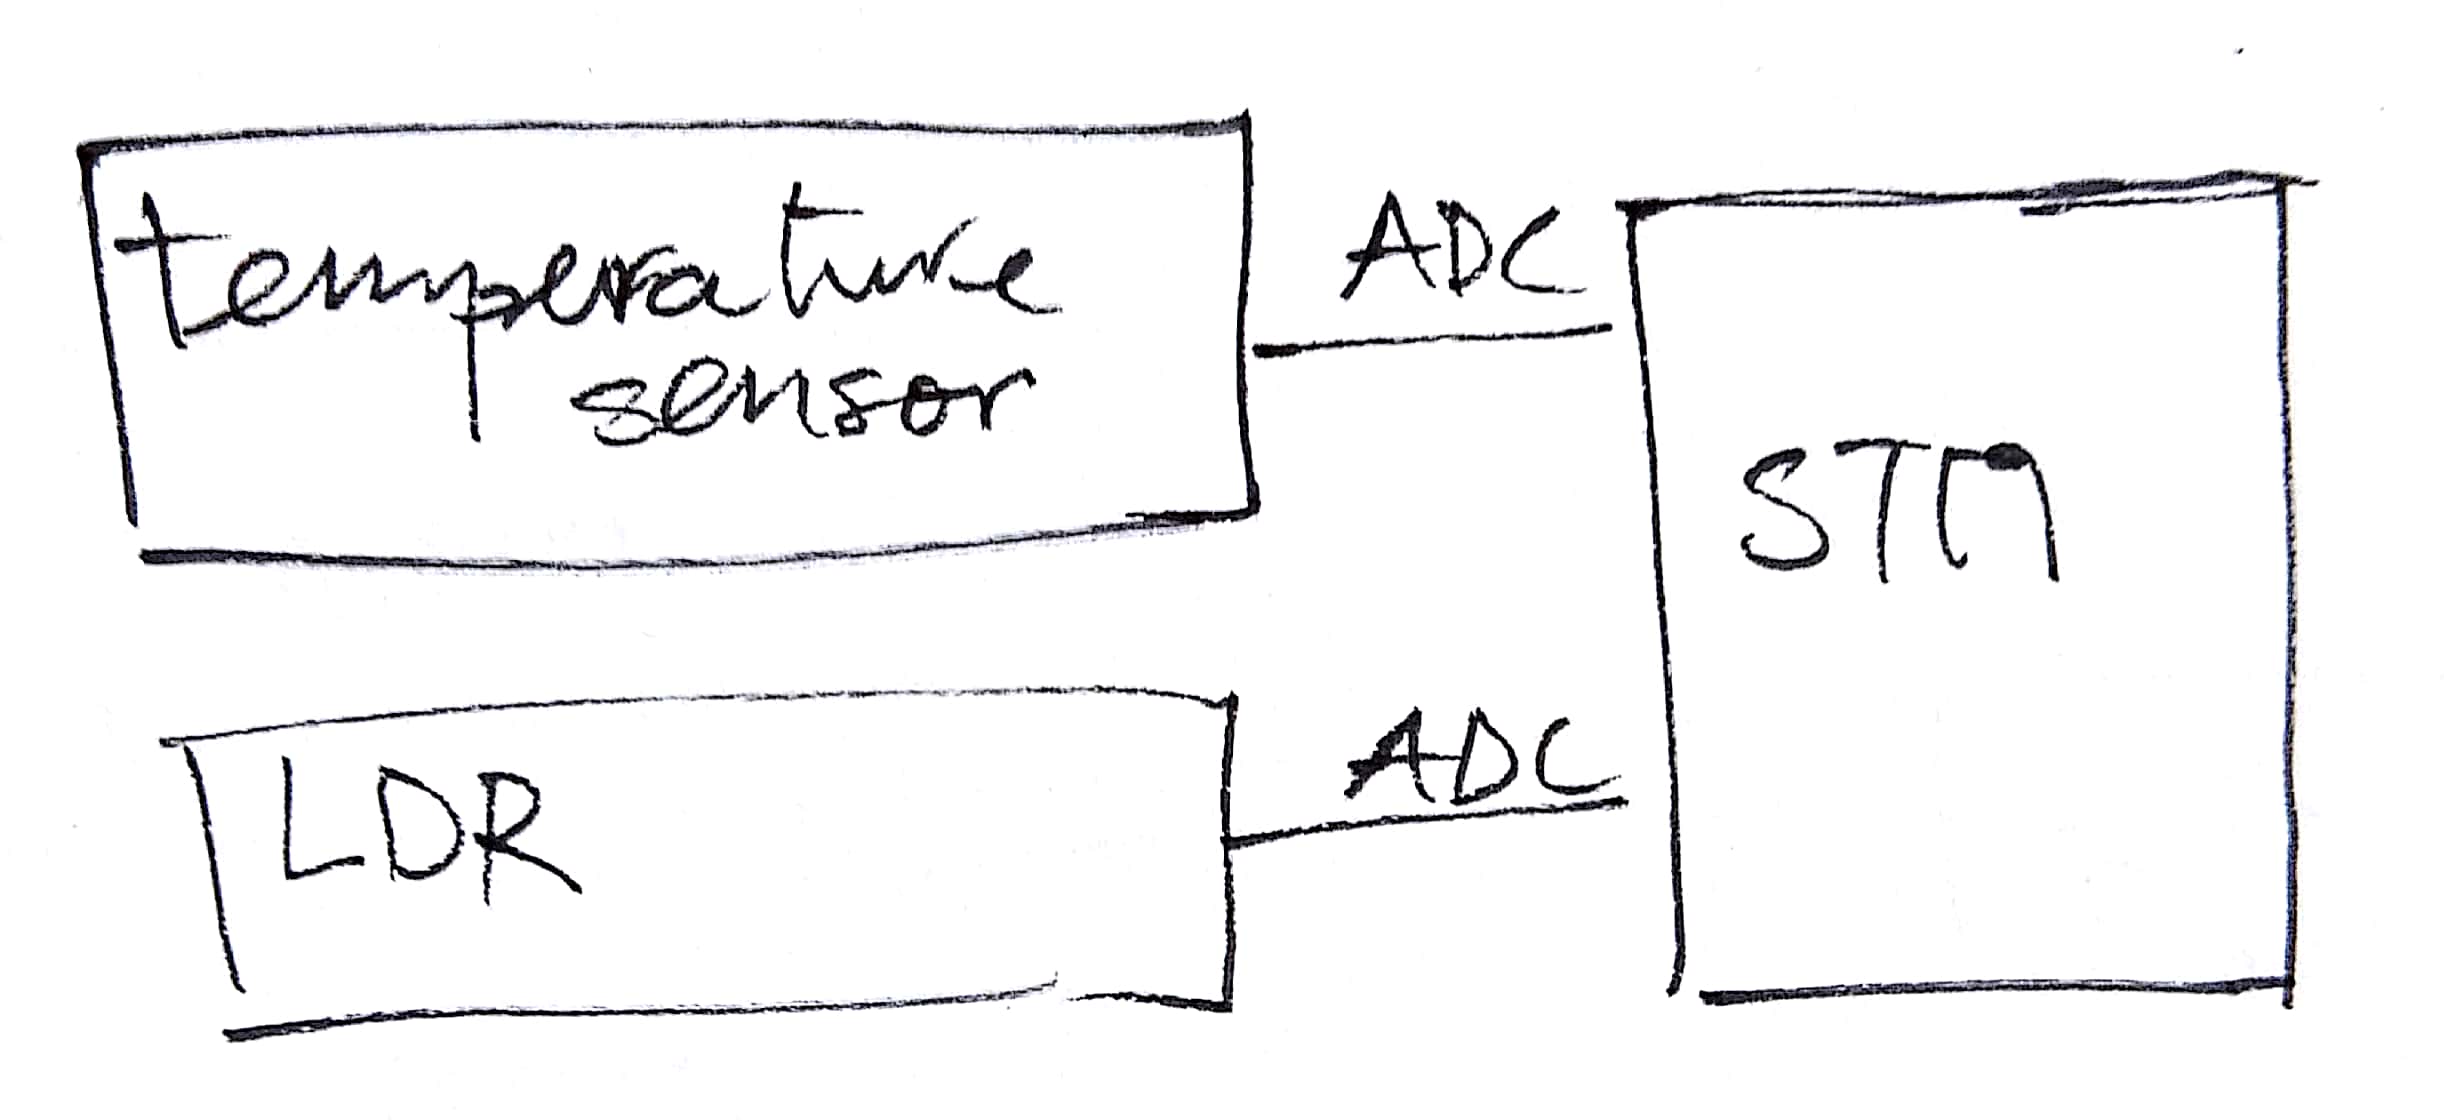 temperature
sensor
ADC
STM
LDR
ADC